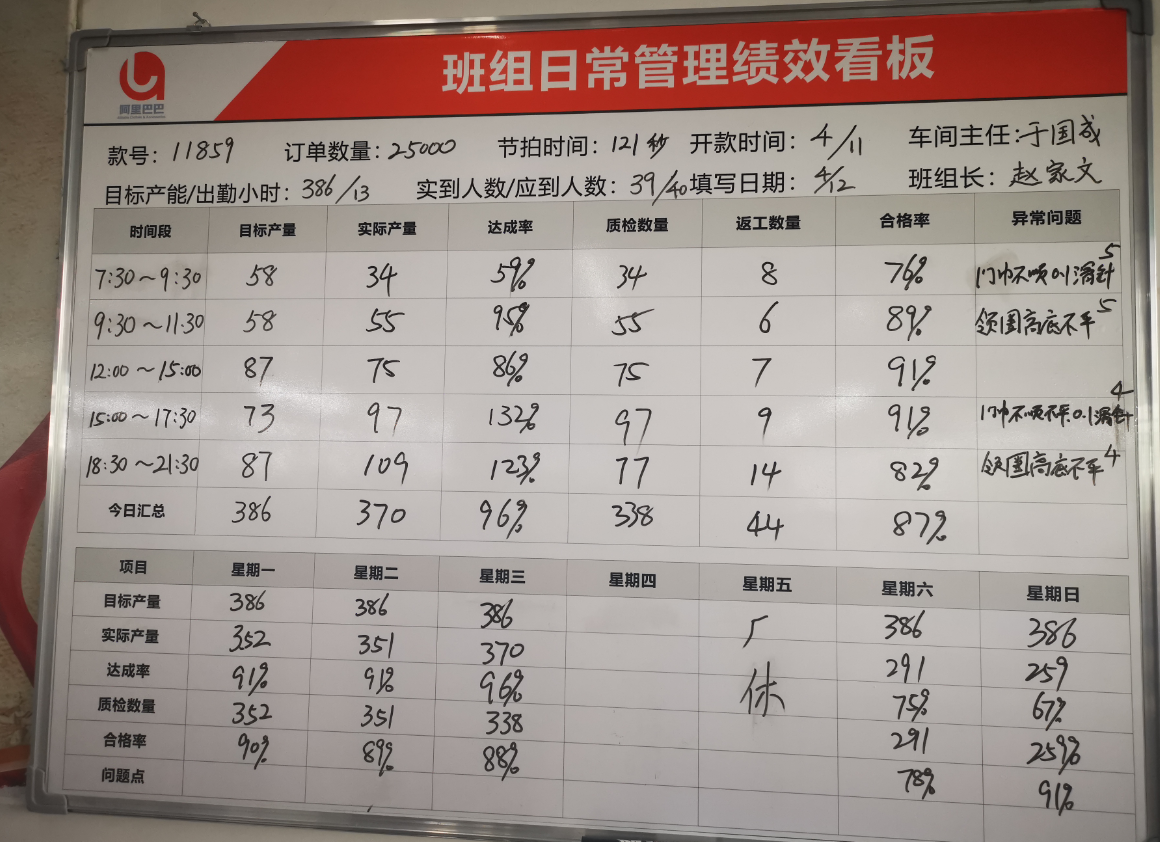 阿里巴巴
班组日常管理绩效看板
款号：11859 订单数量：25000 节拍时间：121秒 开款时间：4/11 车间主任：于国成
目标产能/出勤小时：386/13 实到人数/应到人数：39/40 填写日期：4/12 班组长：赵家文
时间段 目标产量 实际产量 达成率 质检数量 返工数量 合格率 异常问题
7:30～9:30 58 34 59% 34 8 76% 门巾不顺0.1滑针5
9:30～11:30 58 55 95% 55 6 89% 领围高底不平5
12:00～15:00 87 75 86% 75 7 91%
15:00～17:30 73 97 132% 97 9 91% 门巾不顺不平0.1滑针4
18:30～21:30 87 109 123% 77 14 82% 领圈高底不平4
今日汇总 386 370 96% 338 44 87%
项目 星期一 星期二 星期三 星期四 星期五 星期六 星期日
目标产量 386 386 386 386 386
实际产量 352 351 370 厂 291 259
达成率 91% 91% 96% 休 75% 67%
质检数量 352 351 338 291 259%
合格率 90% 89% 88% 78% 91%
问题点